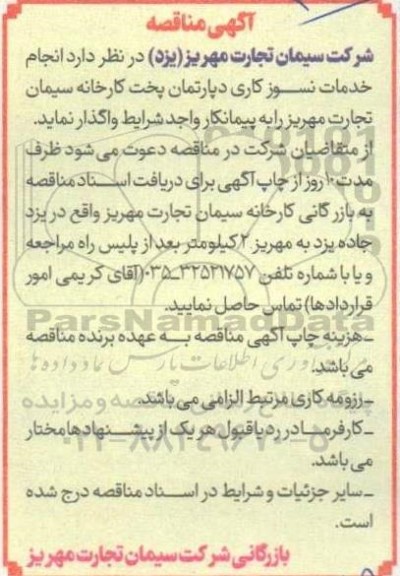 آگهی مناقصه
شرکت سیمان تجارت مهریز (یزد) در نظر دارد انجام
خدمات نسوز کاری دپارتمان پخت کارخانه سیمان
تجارت مهریز را به پیمانکار واجد شرایط واگذار نماید.
از متقاضیان شرکت در مناقصه دعوت می شود ظرف
مدت ۱۰ روز از چاپ آگهی برای دریافت اسناد مناقصه
به بازرگانی کارخانه سیمان تجارت مهریز واقع در یزد
جاده یزد به مهریز ۲ کیلومتر بعد از پلیس راه مراجعه
و یا با شماره تلفن ۳۲۵۲۱۷۵۷-۰۳۵ (آقای کریمی امور
قراردادها) تماس حاصل نمایید.
ParsNamadData
- هزینه چاپ آگهی مناقصه به عهده برنده مناقصه
می باشد.
- رزومه کاری مرتبط الزامی می باشد.
- کارفرما در رد یا قبول هر یک از پیشنهادها مختار
۰۲۱-۸۸۳۴۹۶۷۰-۵
می باشد.
- سایر جزئیات و شرایط در اسناد مناقصه درج شده
است.
بازرگانی شرکت سیمان تجارت مهریز